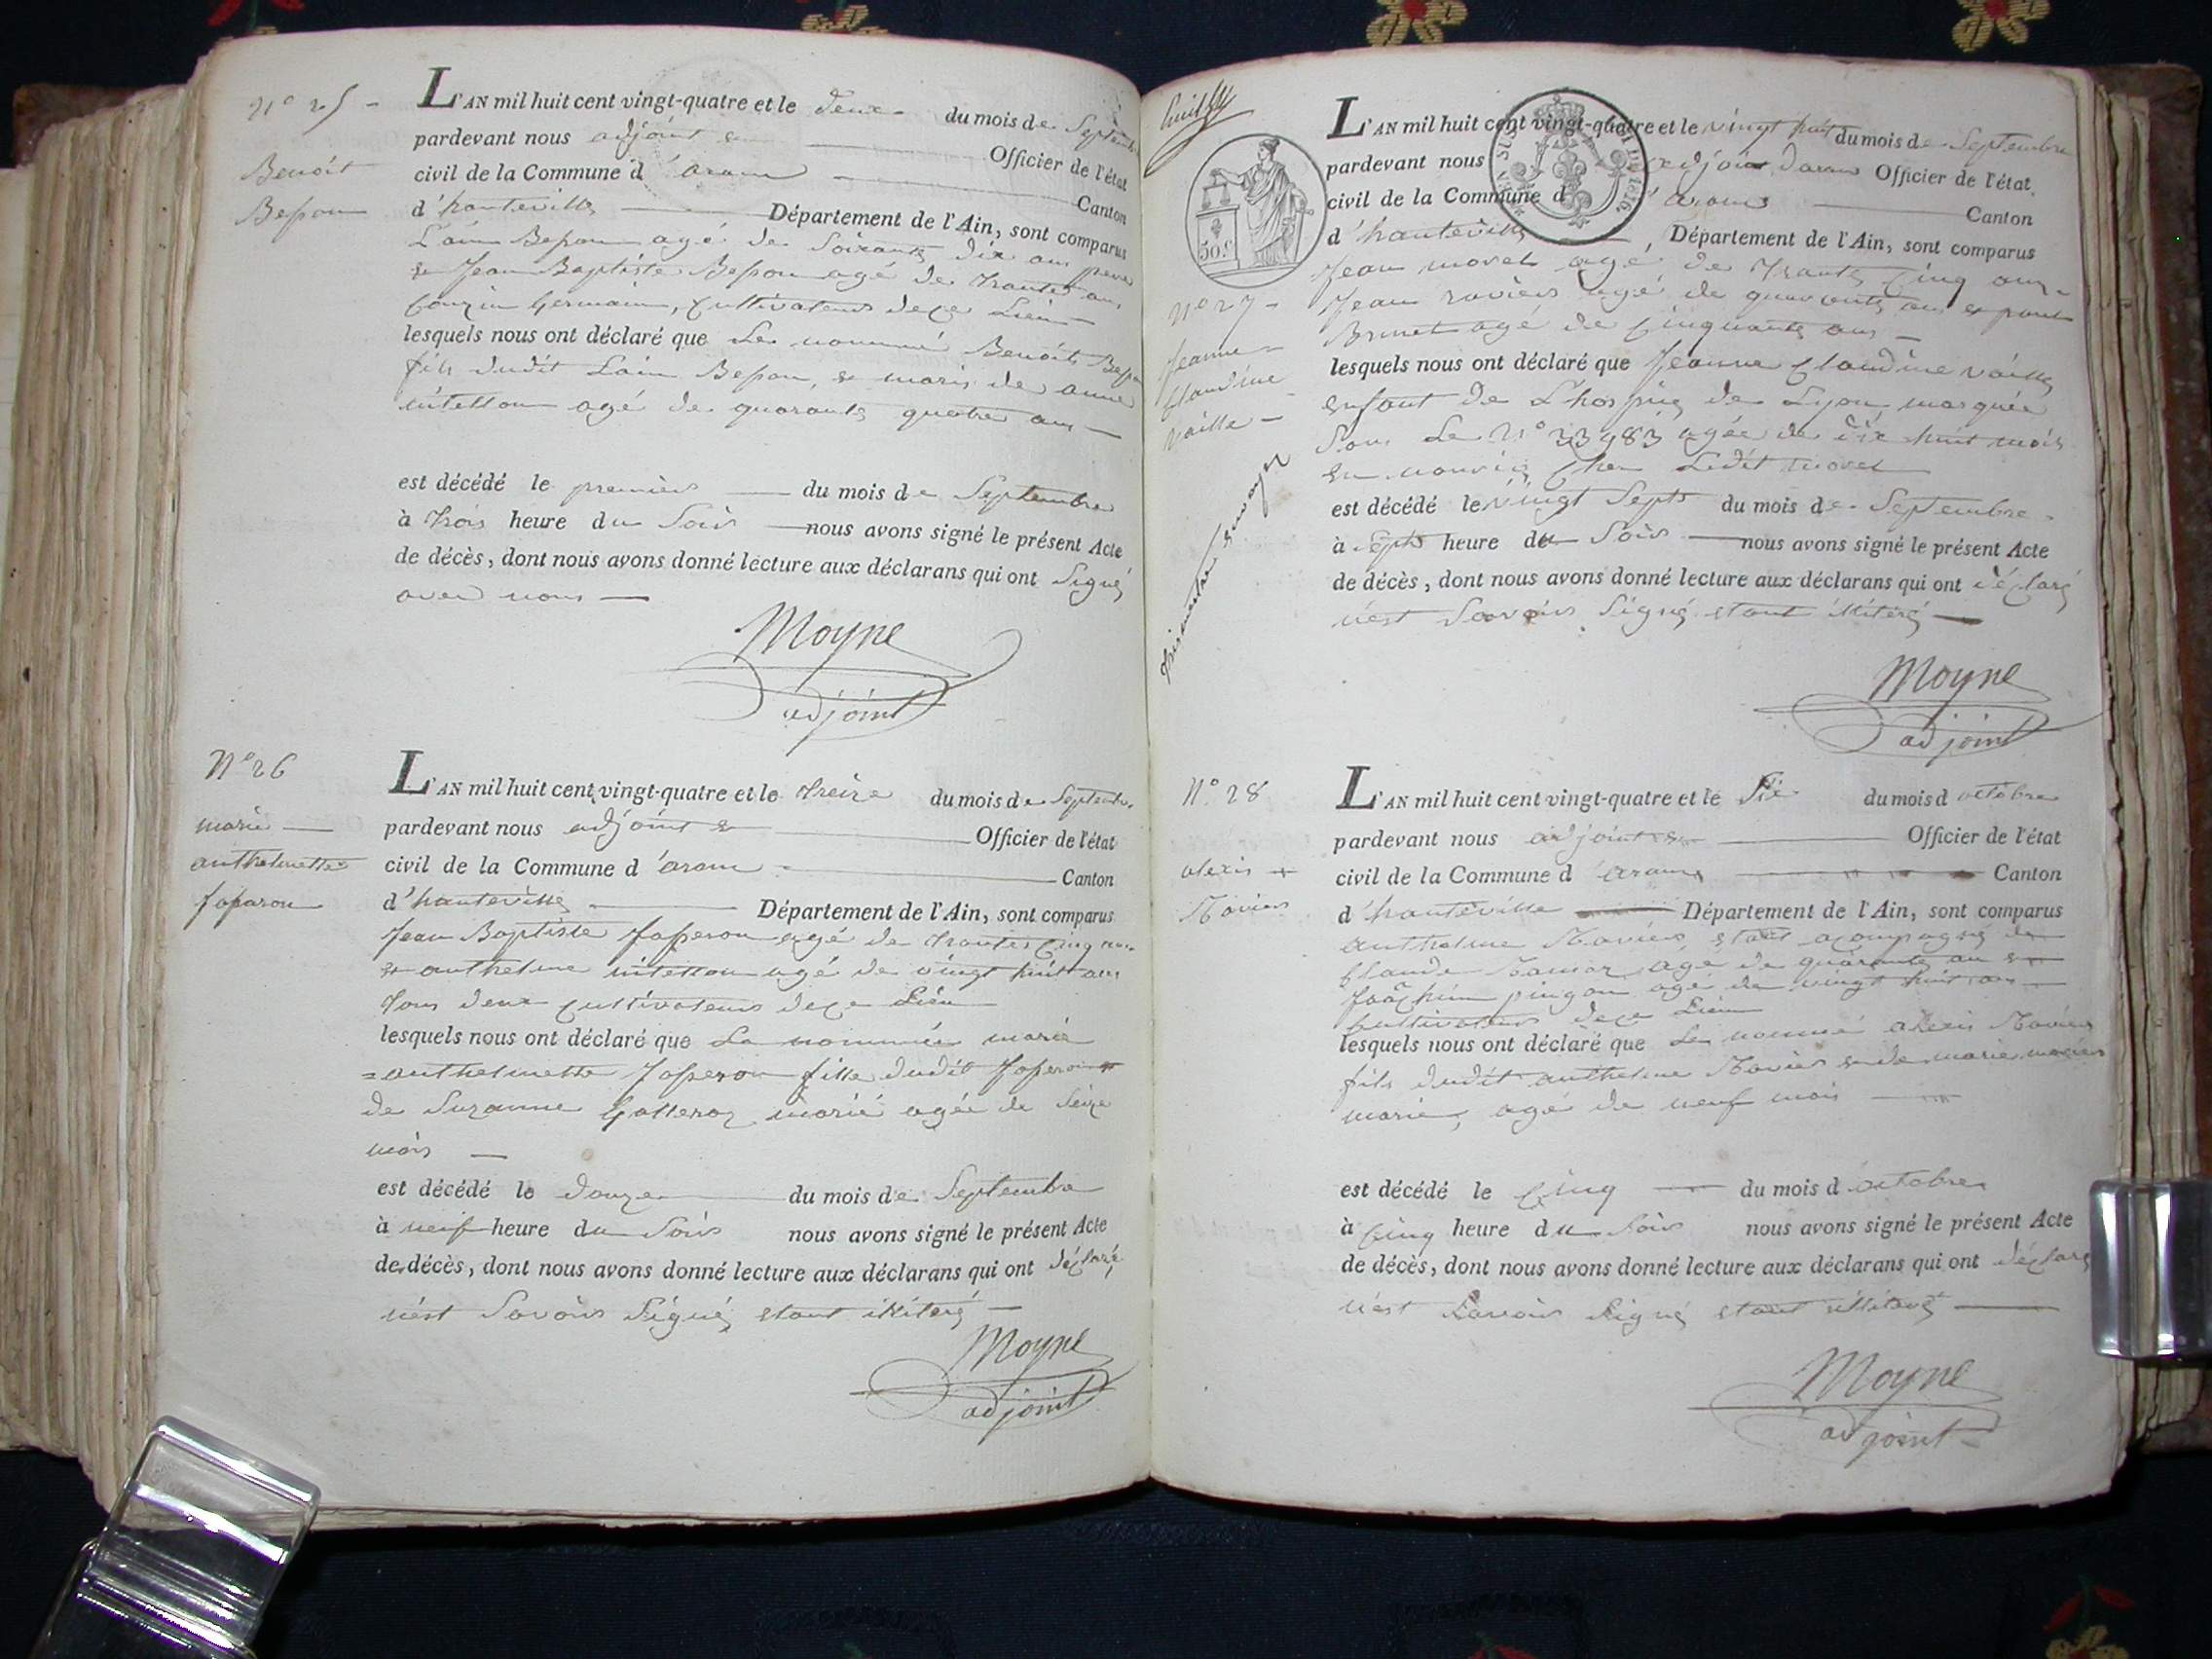 N° 25 -
Benoit
Bepon
L'AN mil huit cent vingt-quatre et le deux du mois de Septembre
pardevant nous adjoint Officier de l'état
civil de la Commune d'aranc Canton
d'hauteville Département de l'Ain, sont comparus
Bepon agé de Soixante dix ans pere
Jean Baptiste Bepon agé de trante ans
Couzin Germain, Cultivateurs de ce Lieu
lesquels nous ont déclaré que Le nommé Benoit Bepon
fils dudit Bepon, & maris de anne
intellon agé de quarante quatre ans
est décédé le premier du mois de Septembre
à trois heure du Soir nous avons signé le présent Acte
de décès, dont nous avons donné lecture aux déclarans qui ont Signé
avec nous
Moyne
adjoint
N° 26
marie
anthelmette
L'AN mil huit cent vingt-quatre et le treize du mois de Septembre
pardevant nous adjoint Officier de l'état
civil de la Commune d'aranc Canton
d'hauteville Département de l'Ain, sont comparus
Jean Baptiste agé de trante Cinq ans
& anthelme intellon agé de vingt huit ans
tous deux Cultivateurs de ce Lieu
lesquels nous ont déclaré que La nommée marie
=anthelmette fille dudit
de Suzanne marié agée de Seize
mois
est décédé le douze du mois de Septembre
à neuf heure du Soir nous avons signé le présent Acte
de décès, dont nous avons donné lecture aux déclarans qui ont déclaré
n'est Savoir Signé, etant illiteré
Moyne
adjoint
50.c
1816.
N° 27 -
Jeanne
Claudine
vaille
L'AN mil huit cent vingt-quatre et le vingt huit du mois de Septembre
pardevant nous adjoint Officier de l'état
civil de la Commune d'aranc Canton
d'hauteville, Département de l'Ain, sont comparus
Jean morel agé de trante Cinq ans
Jean raviere agé de quarante ans &
Brunet agé de Cinquante ans
lesquels nous ont déclaré que Jeanne Claudine vaille
enfant de L'hospice de Lyon, marquée
Sous Le N° 33983 agée de dix huit mois
en Chez Ledit morel
est décédé le vingt Sept du mois de Septembre
à Sept heure du Soir nous avons signé le présent Acte
de décès, dont nous avons donné lecture aux déclarans qui ont déclaré
n'est Savoir Signé, etant illiteré
Moyne
adjoint
N° 28
alexis
L'AN mil huit cent vingt-quatre et le Six du mois d'octobre
pardevant nous adjoint Officier de l'état
civil de la Commune d'aranc Canton
d'hauteville Département de l'Ain, sont comparus
anthelme etant acompagné de
Claude agé de quarante an &
Joachim pingon agé de vingt huit ans
Cultivateurs de ce Lieu
lesquels nous ont déclaré que Le nommé alexis
fils dudit anthelme & de marie
marié, agé de neuf mois
est décédé le Cinq du mois d'octobre
à Cinq heure du Soir nous avons signé le présent Acte
de décès, dont nous avons donné lecture aux déclarans qui ont déclaré
n'est Savoir Signé etant illiteré
Moyne
adjoint